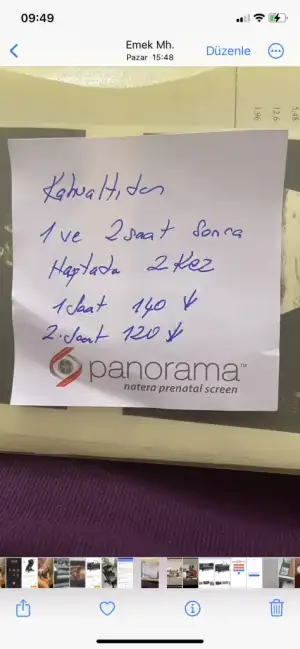 09:49
Emek Mh.
Pazar 15:48
Düzenle
1,96
12,6
5,48
Kahvaltıdan
1 ve 2 saat sonra
Haftada 2 Kez
1 Saat 140 ↓
2. Saat 120 ↓
panorama™
natera prenatal screen